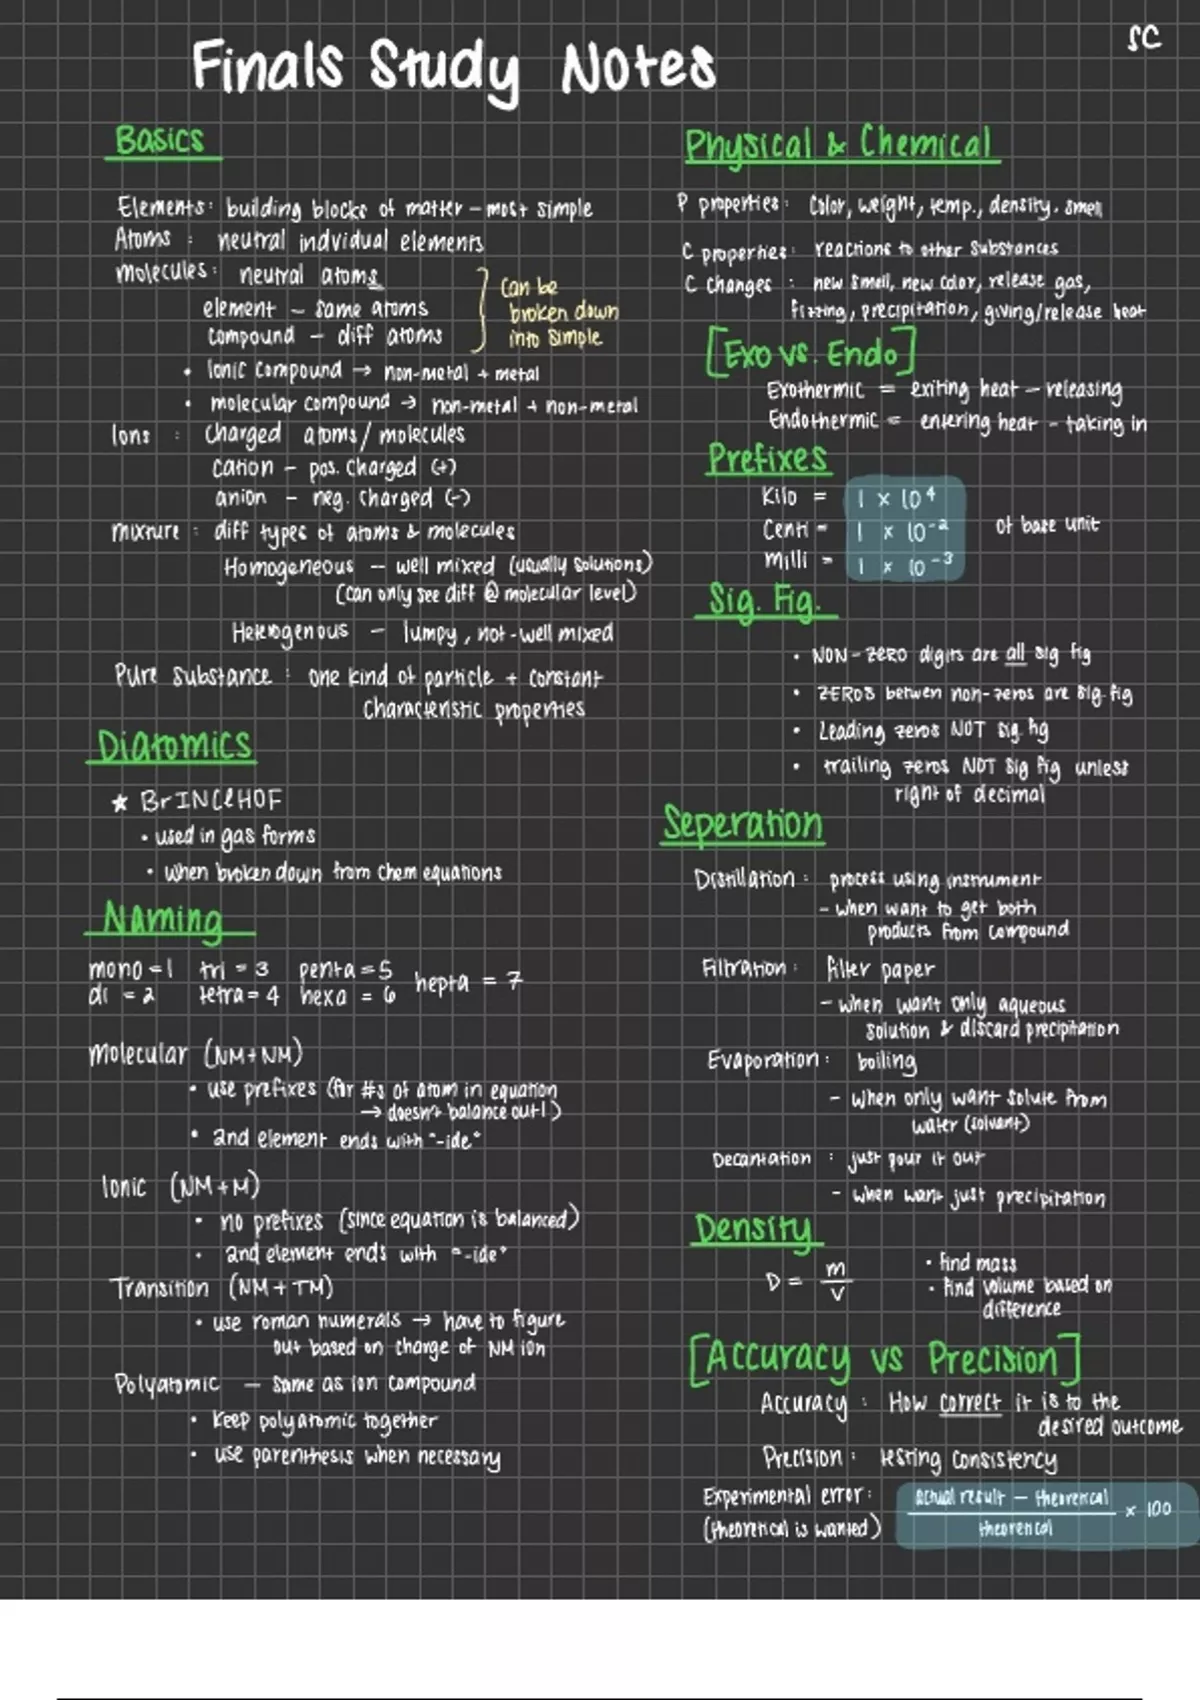 SC
Finals Study Notes
Basics
Elements: building blocks of matter - most simple
Atoms : neutral indvidual elements
molecules: neutral atoms
element - same atoms
compound - diff atoms
can be
broken down
into simple
• Ionic compound → non-metal + metal
• molecular compound → non-metal + non-metal
Ions : Charged atoms/molecules
cation - pos. charged (+)
anion - neg. charged (-)
mixture : diff types of atoms & molecules
Homogeneous - well mixed (usually solutions)
(can only see diff @ molecular level)
Heterogenous - lumpy, not-well mixed
Pure Substance : one kind of particle + constant
characteristic properties
Diatomics
★ BrINClHOF
• used in gas forms
• when broken down from chem equations
Naming
mono = 1 tri = 3 penta = 5
di = 2 tetra = 4 hexa = 6
hepta = 7
Molecular (NM+NM)
• use prefixes (for #s of atom in equation
→ doesn't balance out!)
• 2nd element ends with "-ide"
Ionic (NM+M)
• no prefixes (since equation is balanced)
• 2nd element ends with "-ide"
Transition (NM+TM)
• use roman numerals → have to figure
out based on charge of NM ion
Polyatomic - same as ion compound
• keep polyatomic together
• use parenthesis when necessary
Physical & Chemical
P properties: Color, weight, temp., density. smell
C properties: reactions to other substances
C changes : new smell, new color, release gas,
fizzing, precipitation, giving/release heat
[Exo vs. Endo]
Exothermic = exiting heat - releasing
Endothermic = entering heat - taking in
Prefixes
Kilo = 1 x 10⁴
Centi = 1 x 10⁻² of base unit
Milli = 1 x 10⁻³
Sig. Fig.
• NON-zero digits are all sig fig
• ZEROS betwen non-zeros are sig. fig
• Leading zeros NOT sig. fig
• trailing zeros NOT sig fig unless
right of decimal
Seperation
Distillation : process using instrument
- when want to get both
products from compound
Filtration : filter paper
- when want only aqueous
solution & discard precipitation
Evaporation : boiling
- when only want solute from
water (solvant)
Decantation : just pour it out
- when want just precipitation
Density
D = m/v
• find mass
• find volume based on
difference
[Accuracy vs Precision]
Accuracy : How correct it is to the
desired outcome
Precision : testing consistency
Experimental error:
(theoretical is wanted)
actual result - theoretical
theoretical
x 100